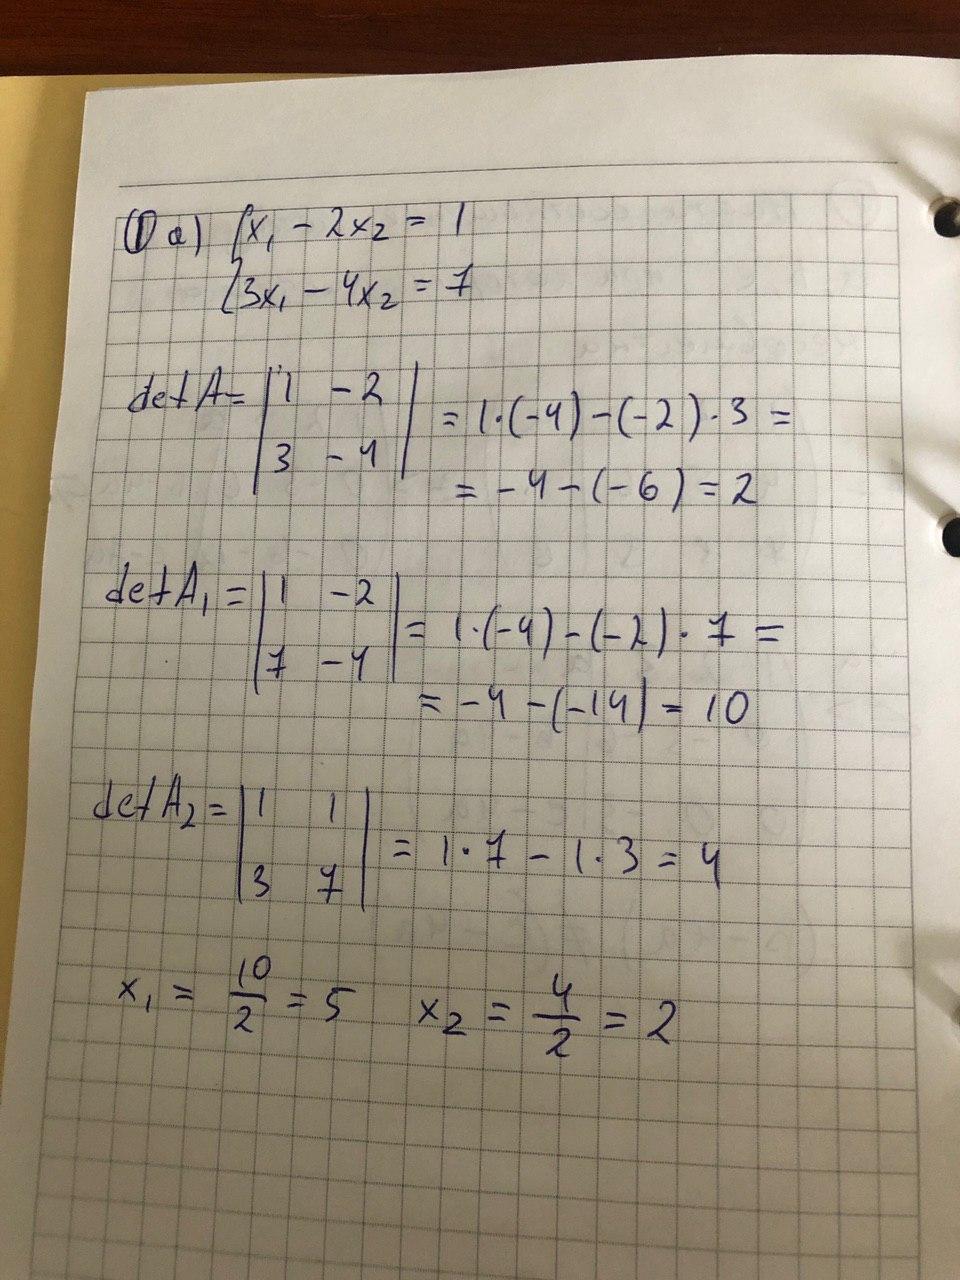 ① a) { x₁ - 2x₂ = 1
3x₁ - 4x₂ = 7
detA = | 1 -2 | = 1·(-4)-(-2)·3 =
| 3 -4 |
= -4-(-6) = 2
detA₁ = | 1 -2 | = 1·(-4)-(-2)·7 =
| 7 -4 |
= -4-(-14) = 10
detA₂ = | 1 1 | = 1·7 - 1·3 = 4
| 3 7 |
x₁ = 10/2 = 5 x₂ = 4/2 = 2